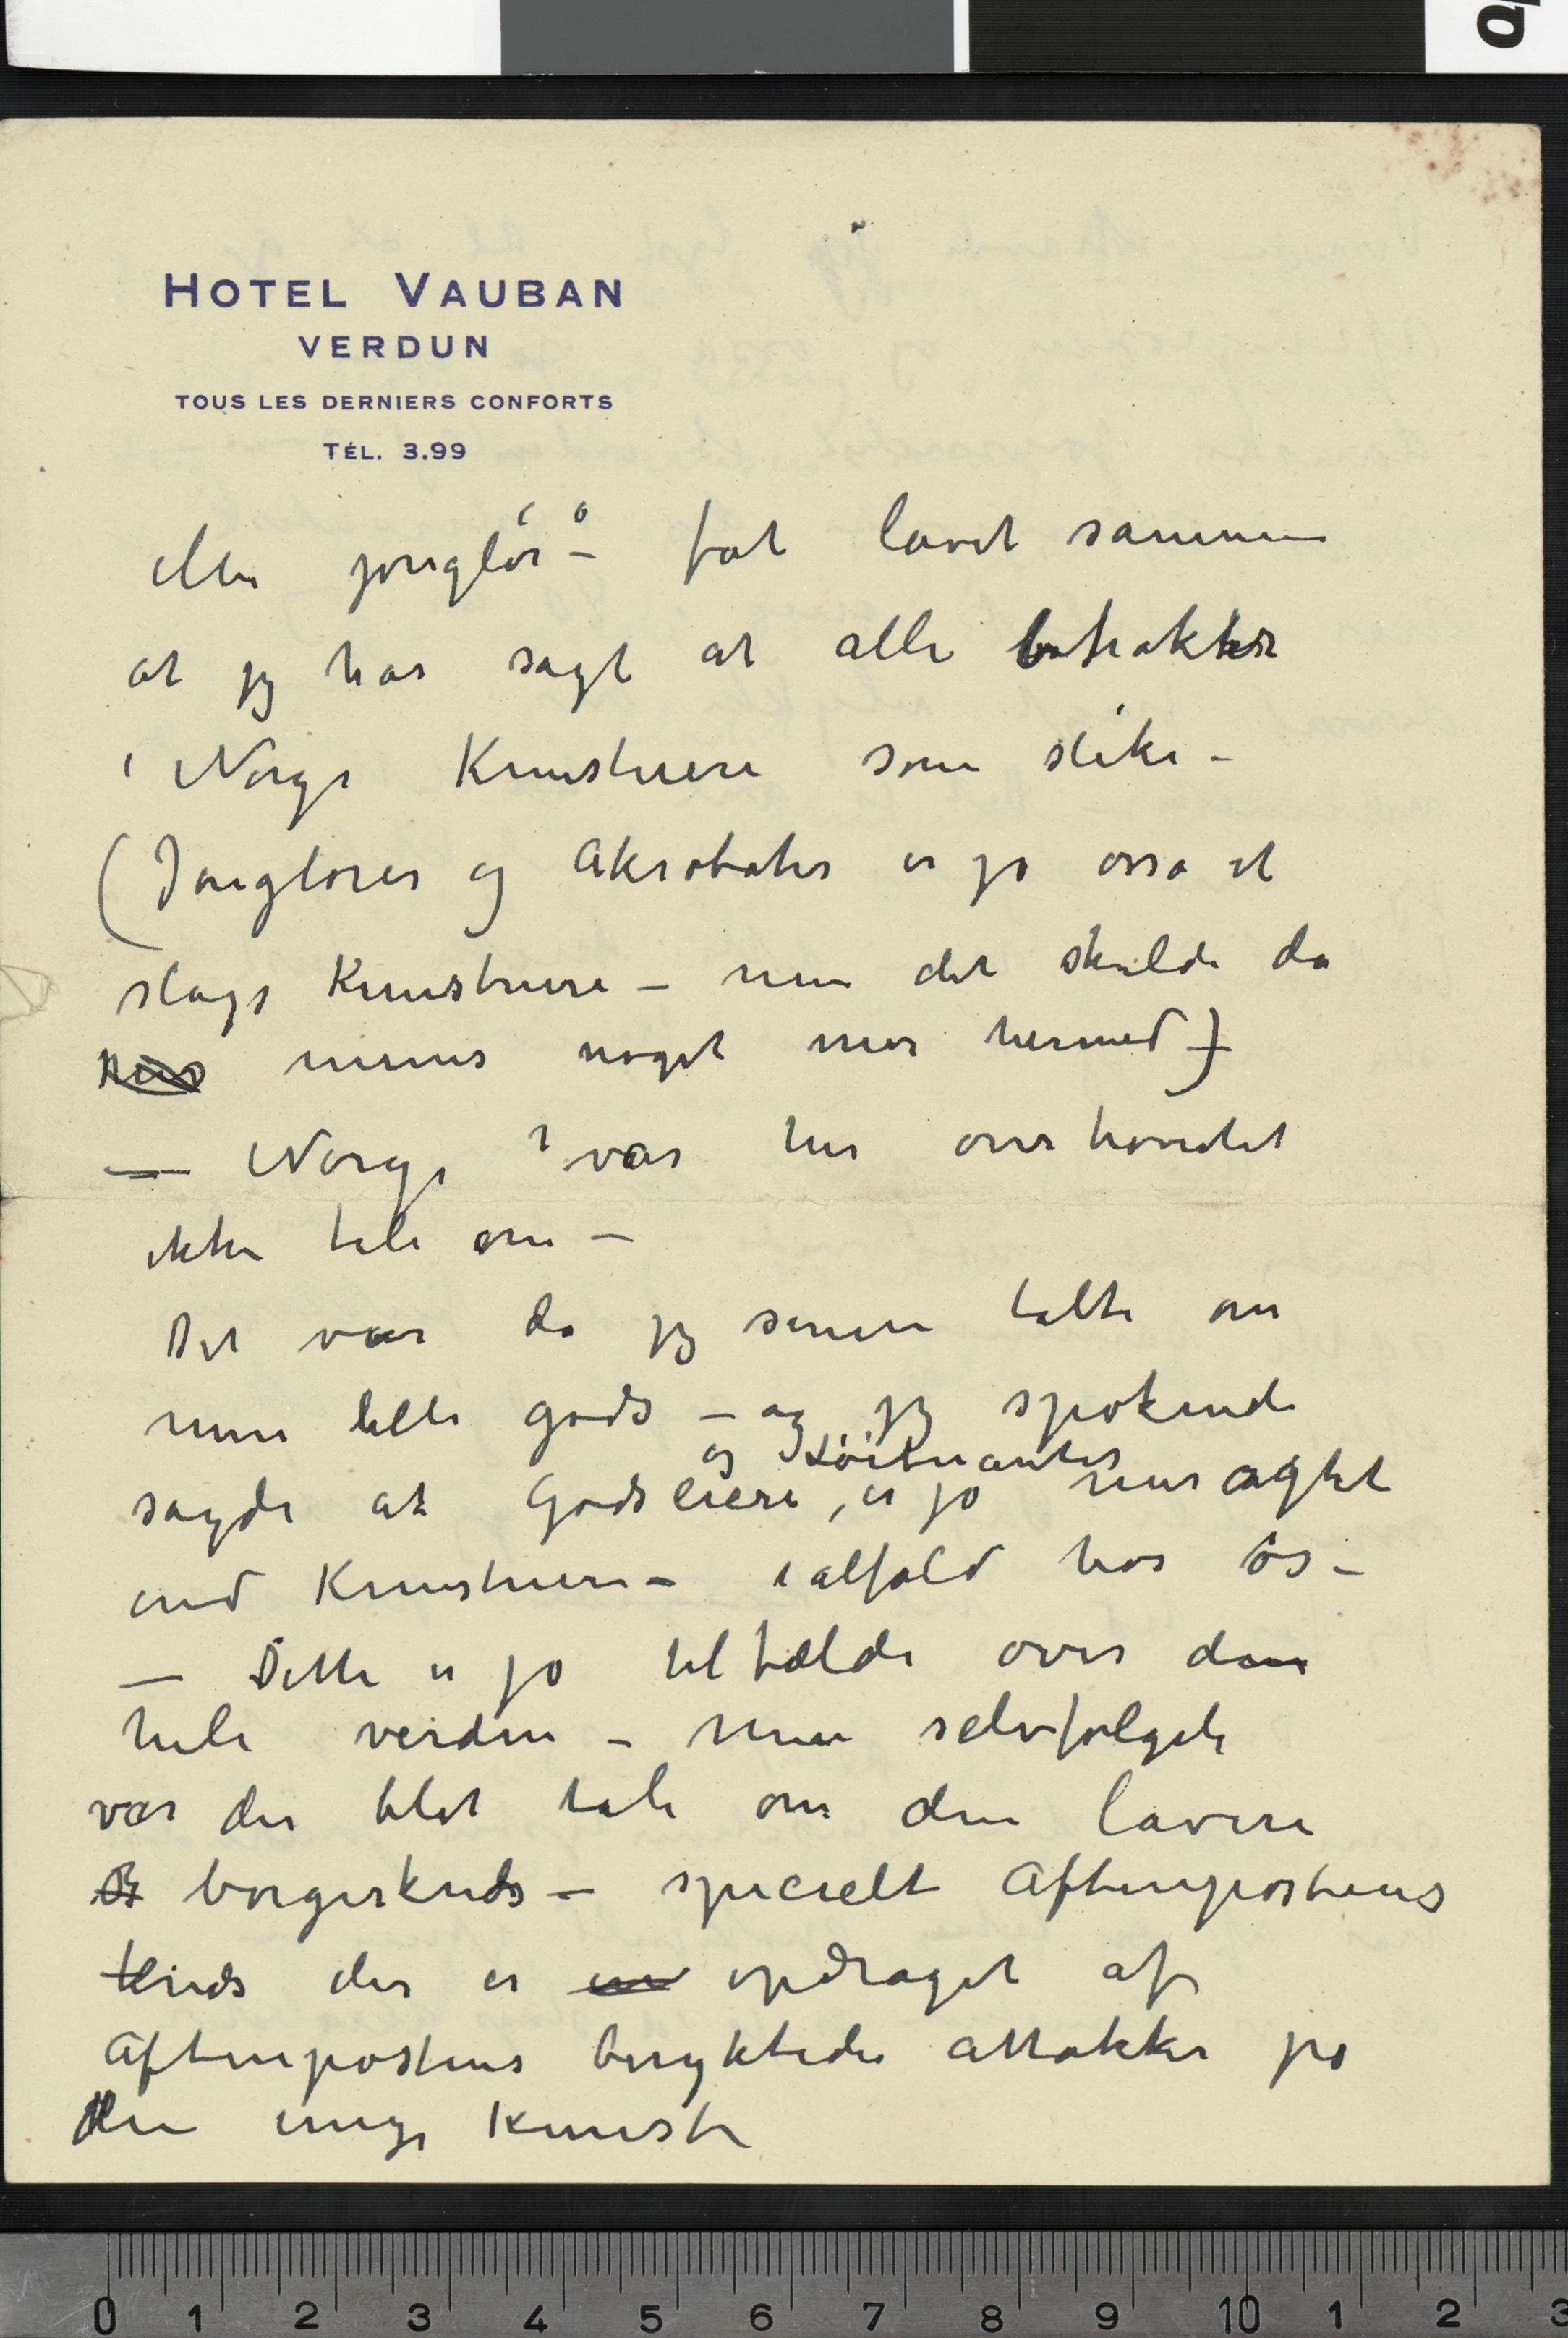 HOTEL VAUBAN
VERDUN
TOUS LES DERNIERS CONFORTS
TÉL. 3.99
eller jonglør“ – fåt lavet sammen
at jeg har sagt at alle betrakter
i Norge Kunstnere som slike –
(Jonglører og Akrobater er jo osså et
slags Kunstnere – men det skulde da
menes noget mer hermed)
– Norge var her overhovedet
ikke tale om –
Det var da jeg senere talte om
mine lille gods – og jeg spøkende
og Løitnanter
sagde at Godseiere, er jo mer agtet
end Kunstnere – ialfald hos os –
– Dette er jo tilfælde over den
hele verden – Men selvfølgeli
var der blot tale om den lavere
borgerkreds – specielt Aftenpostens
kreds der er opdraget af
Aftenpostens beryktede attakker på
den unge Kunst
0 1 2 3 4 5 6 7 8 9 10 1 2 3